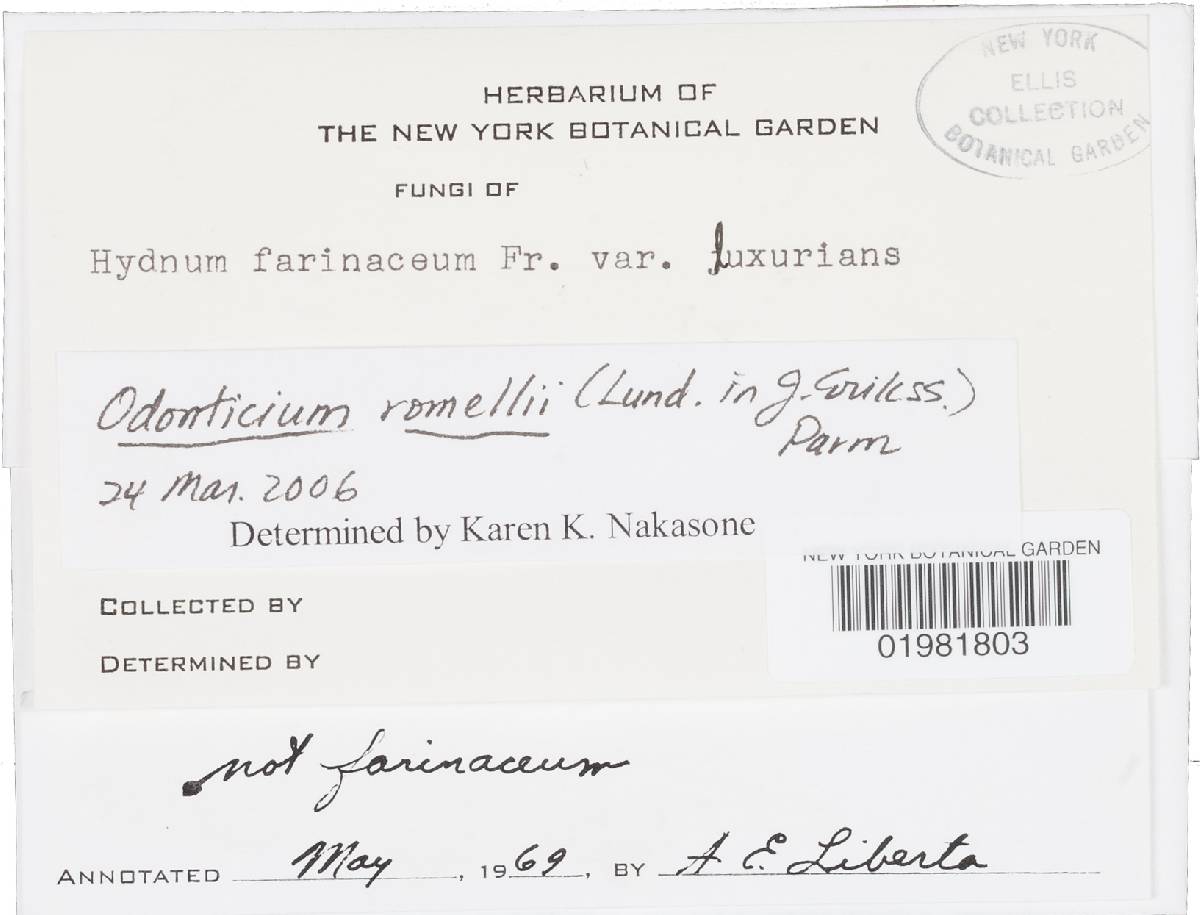 HERBARIUM OF
THE NEW YORK BOTANICAL GARDEN
NEW YORK
ELLIS
COLLECTION
BOTANICAL GARDEN
FUNGI OF
Hydnum farinaceum Fr. var. luxurians
Odonticium romellii (Lund. in J. Erikss.)
Parm
24 Mar. 2006
Determined by Karen K. Nakasone
NEW YORK BOTANICAL GARDEN
01981803
COLLECTED BY
DETERMINED BY
not farinaceum
ANNOTATED May, 1969, BY A E. Liberta